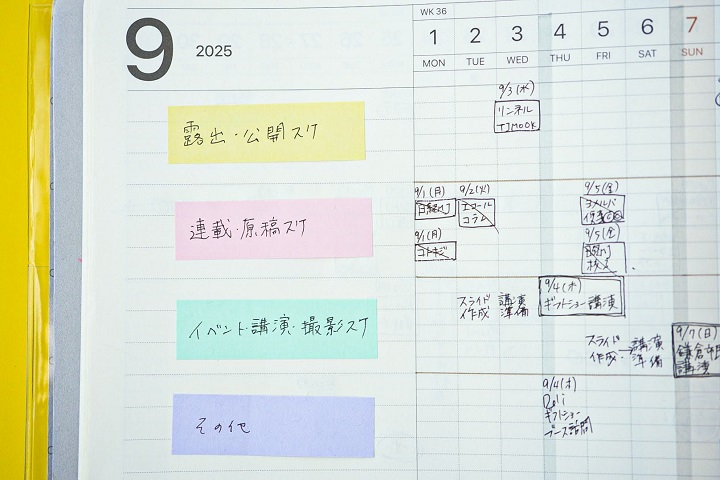 9 2025
WK 36
1 2 3 4 5 6 7
MON TUE WED THU FRI SAT SUN
9/3(水)
リンネル
TJMOOK
露出・公開スケ
9/1(月)
9/2(火)
エコール
コラム
9/5(金)
ヨメルバ
9/1(月)
コトキジ
9/5(金)
連載・原稿スケ
スライド
作成
講演
準備
9/4(木)
ギフトショー講演
イベント・講演・撮影スケ
スライド
作成
講演
準備
9/7(日)
鎌倉市
講演
その他
9/4(木)
Deli
ギフトショー
ブース訪問